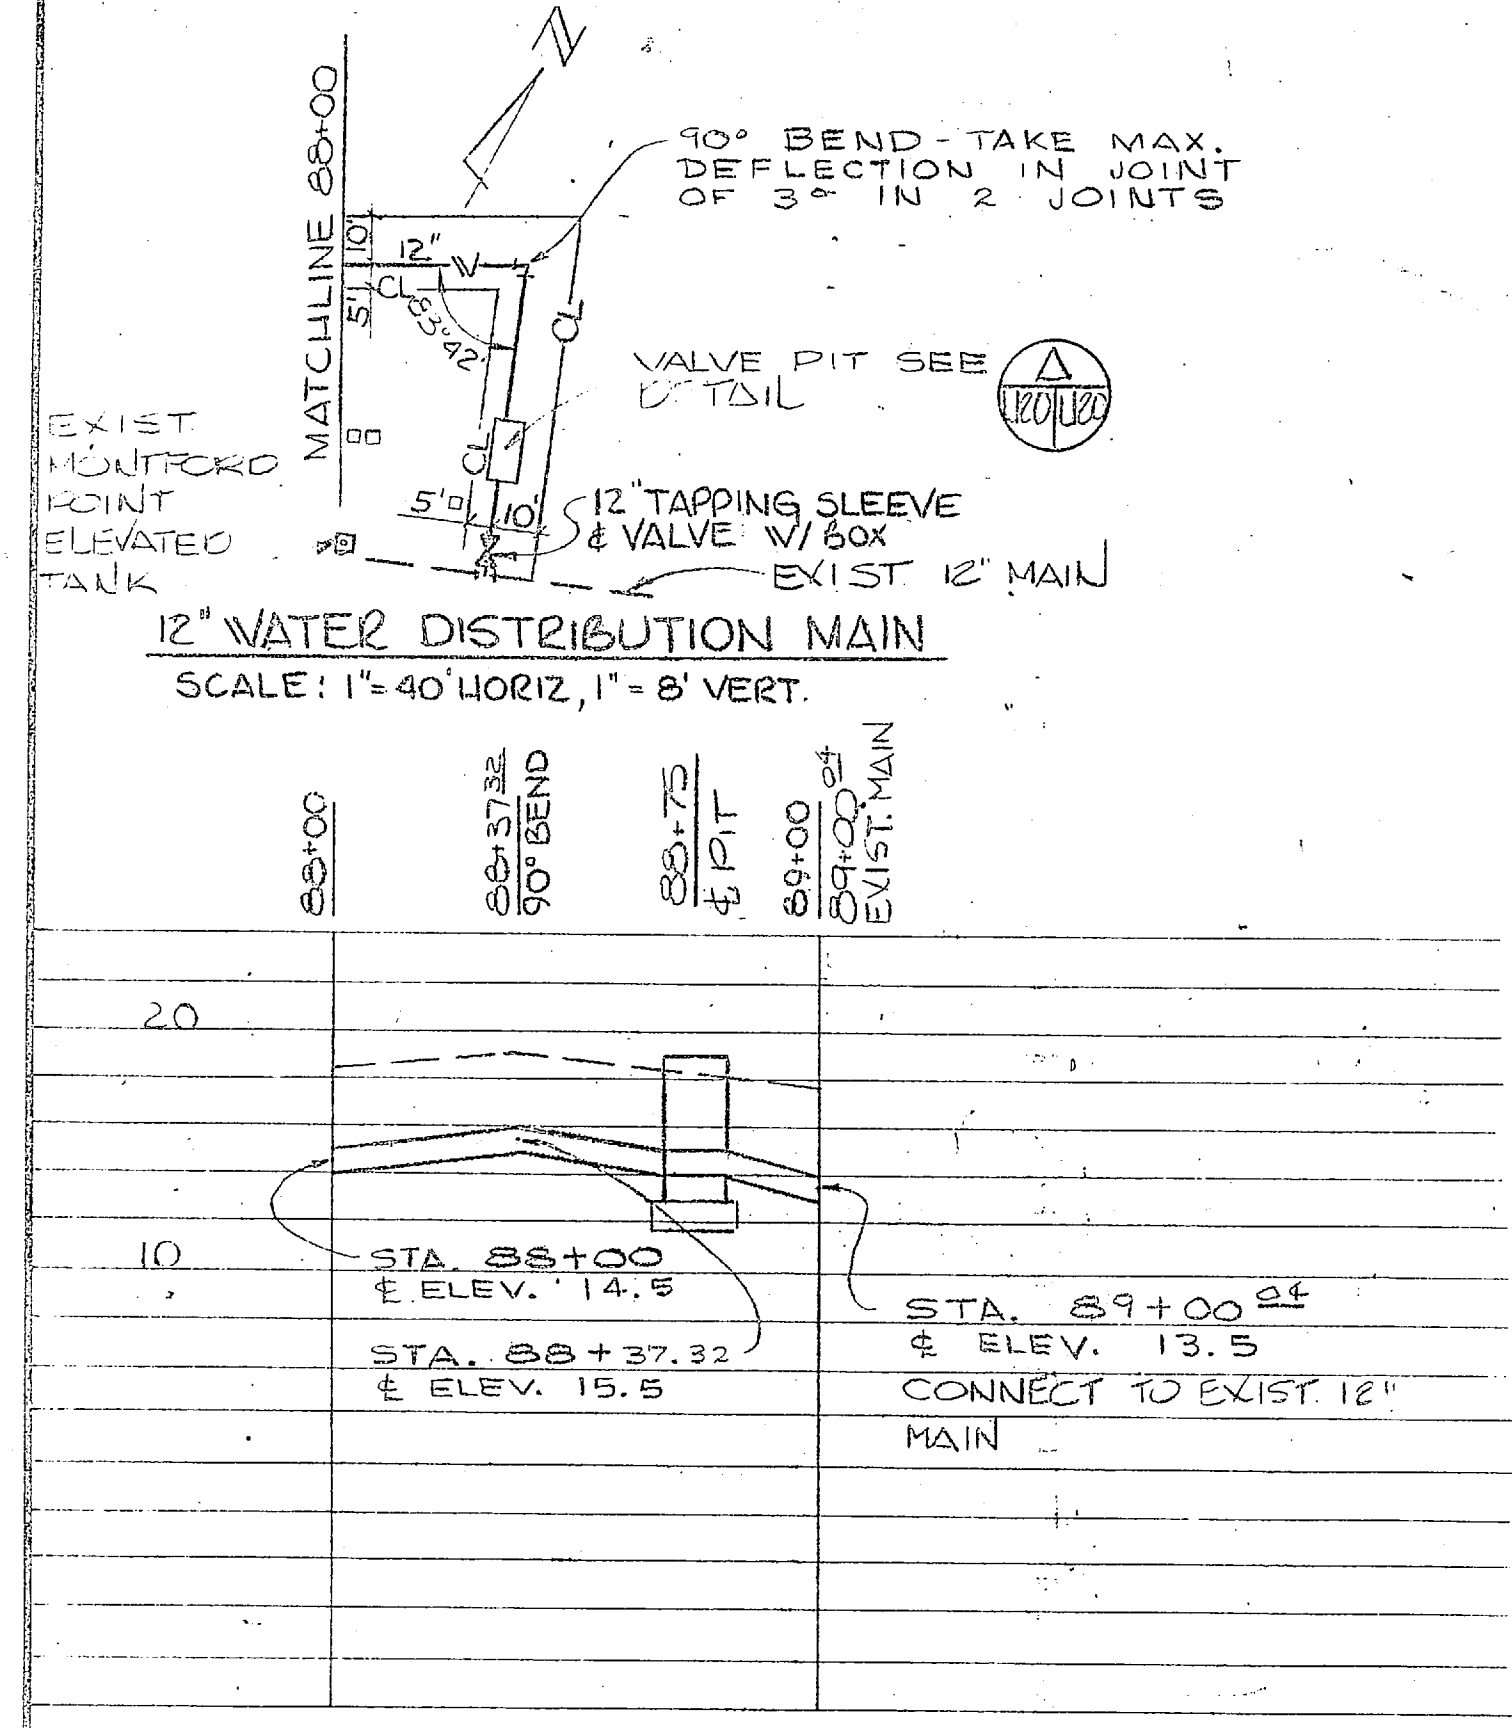 N
90° BEND - TAKE MAX.
DEFLECTION IN JOINT
OF 3° IN 2 JOINTS
MATCHLINE 88+00
10'
12" W
CL
5'
83°42'
CL
VALVE PIT SEE
DETAIL
A
U20 U20
EXIST.
MONTFORD
POINT
ELEVATED
TANK
CL
5'
10'
12" TAPPING SLEEVE
& VALVE W/ BOX
EXIST. 12" MAIN
12" WATER DISTRIBUTION MAIN
SCALE: 1"=40' HORIZ, 1"=8' VERT.
88+00
88+37 32
90° BEND
88+75
℄ PIT
89+00
89+00 04
EXIST. MAIN
20
10
STA. 88+00
℄ ELEV. 14.5
STA. 88+37.32
℄ ELEV. 15.5
STA. 89+00 04
℄ ELEV. 13.5
CONNECT TO EXIST. 12"
MAIN